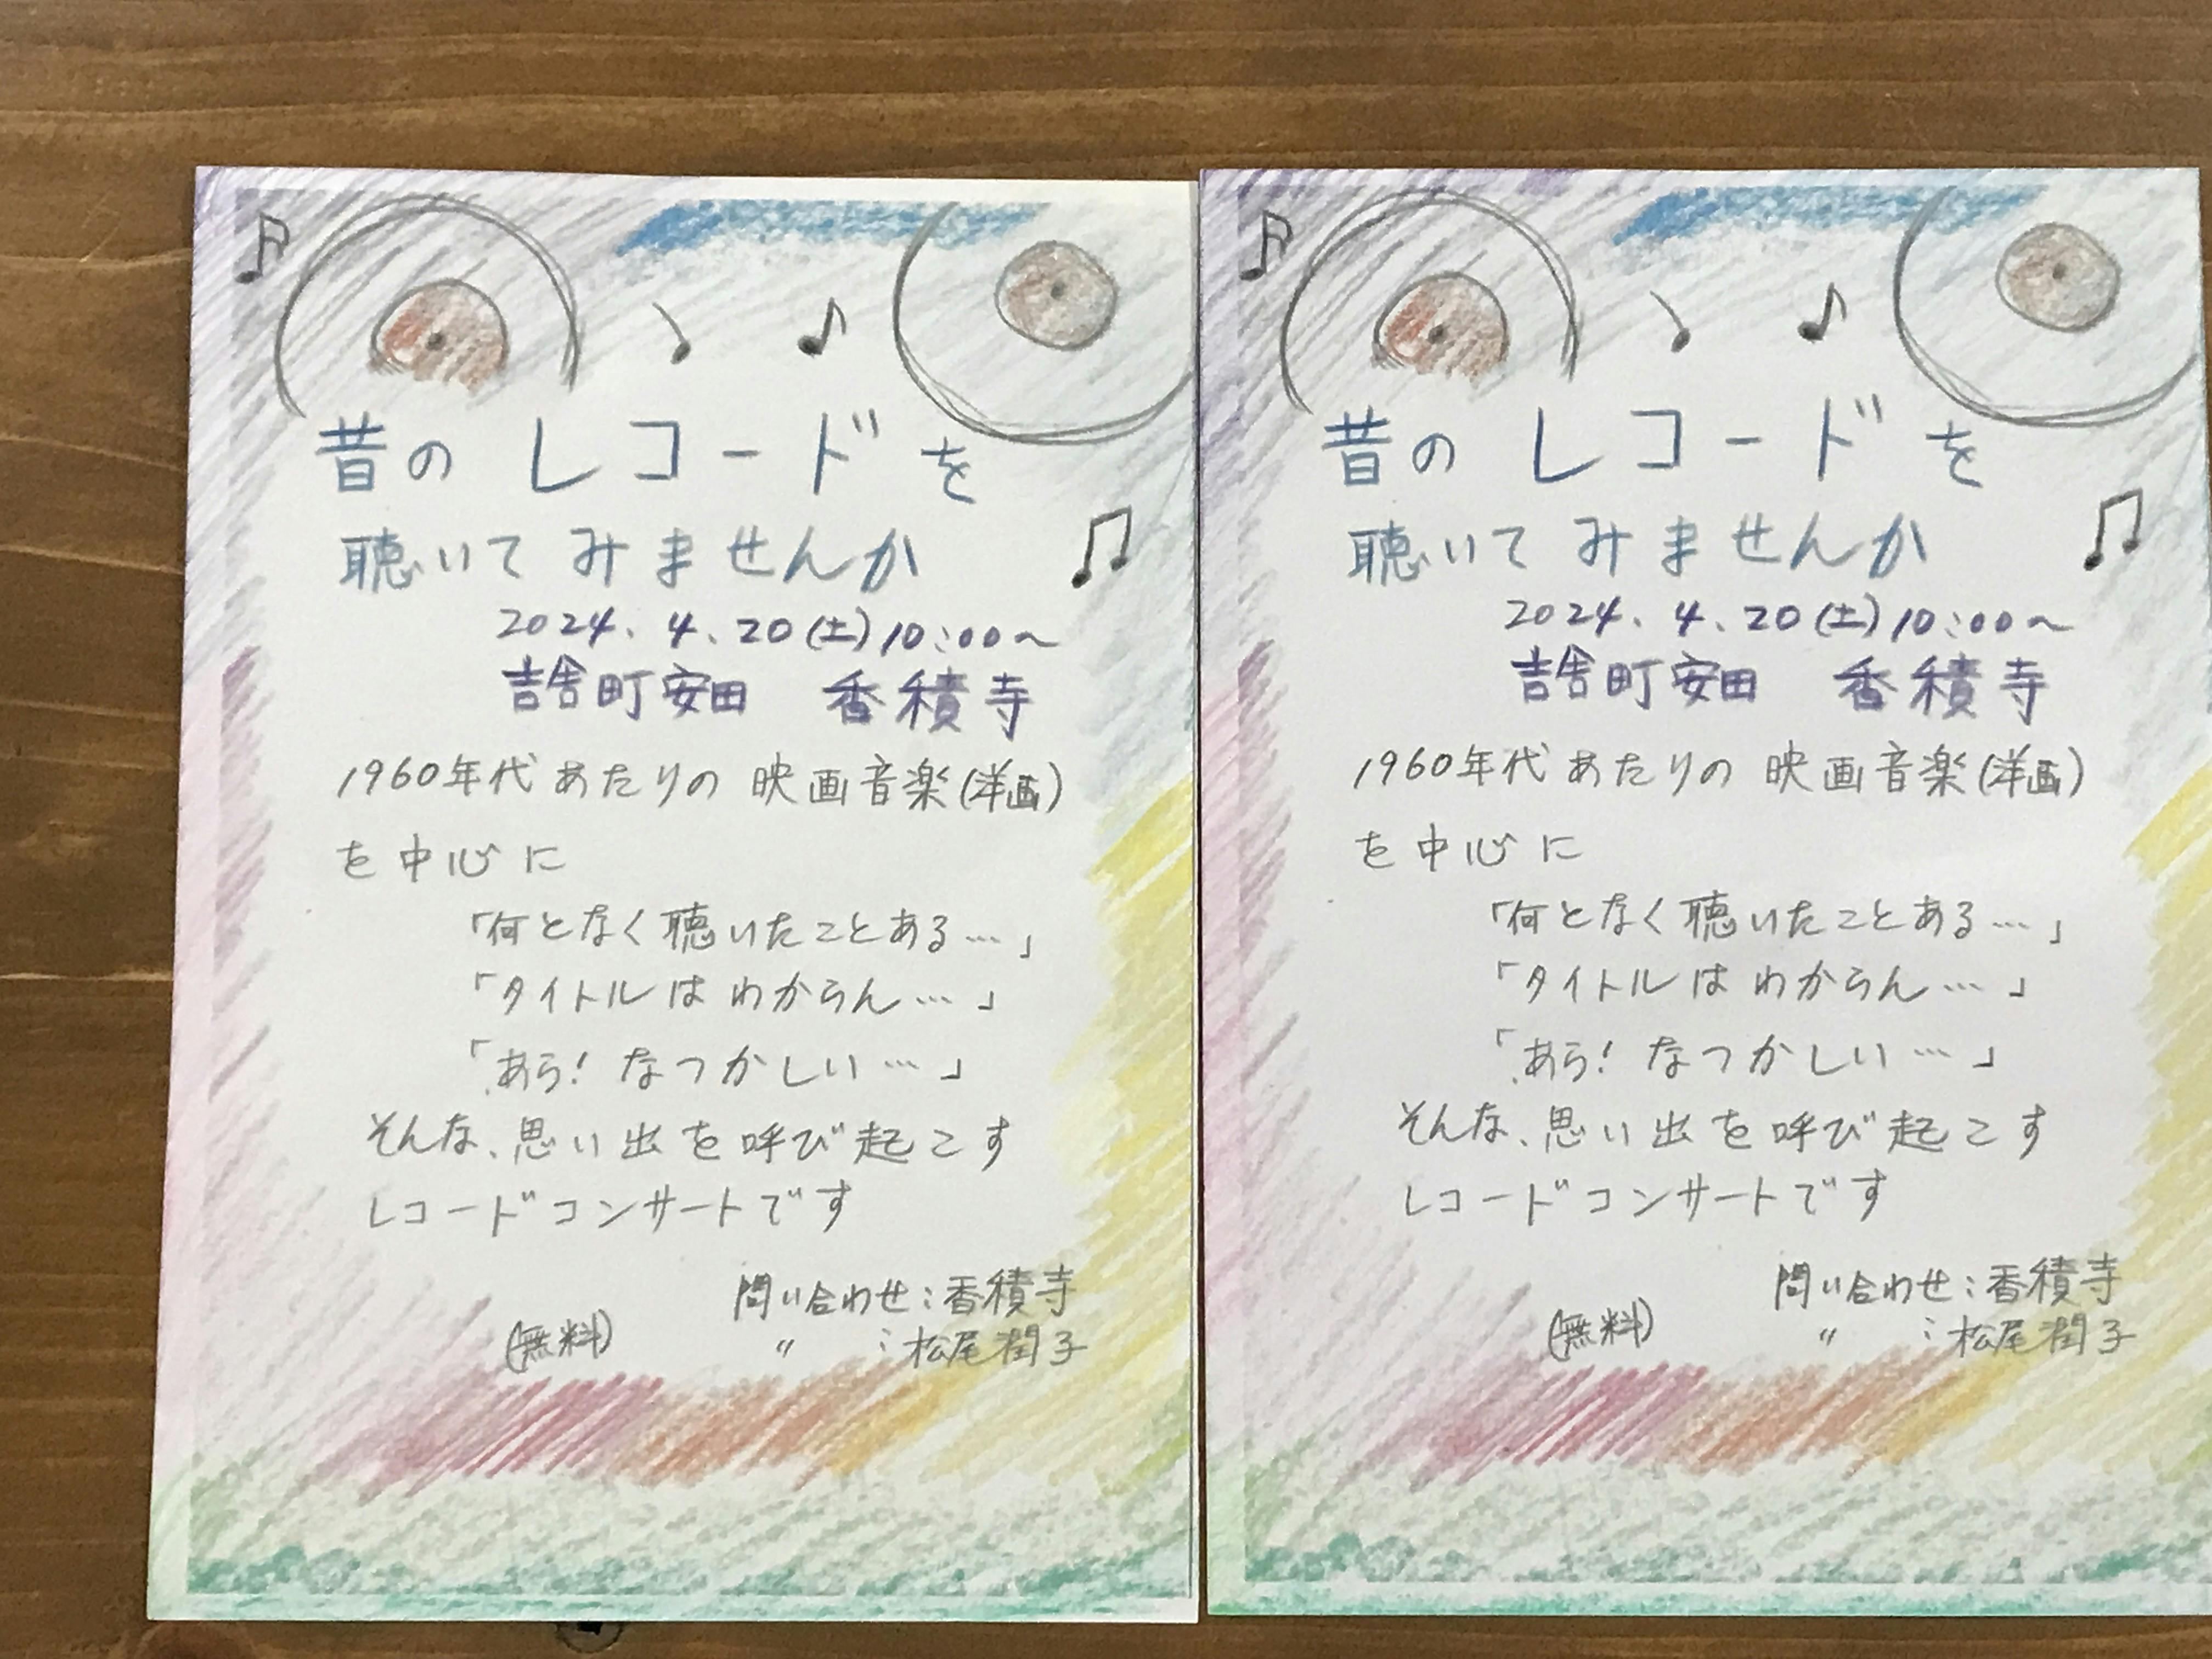 昔のレコードを
聴いてみませんか
2024.4.20(土)10:00~
吉舎町安田 香積寺
1960年代あたりの映画音楽(洋画)
を中心に
「何となく聴いたことある…」
「タイトルはわからん…」
「あら!なつかしい…」
そんな、思い出を呼び起こす
レコードコンサートです
問い合わせ:香積寺
(無料) 〃 :松尾潤子
昔のレコードを
聴いてみませんか
2024.4.20(土)10:00~
吉舎町安田 香積寺
1960年代あたりの映画音楽(洋画)
を中心に
「何となく聴いたことある…」
「タイトルはわからん…」
「あら!なつかしい…」
そんな、思い出を呼び起こす
レコードコンサートです
問い合わせ:香積寺
(無料) 〃 :松尾潤子